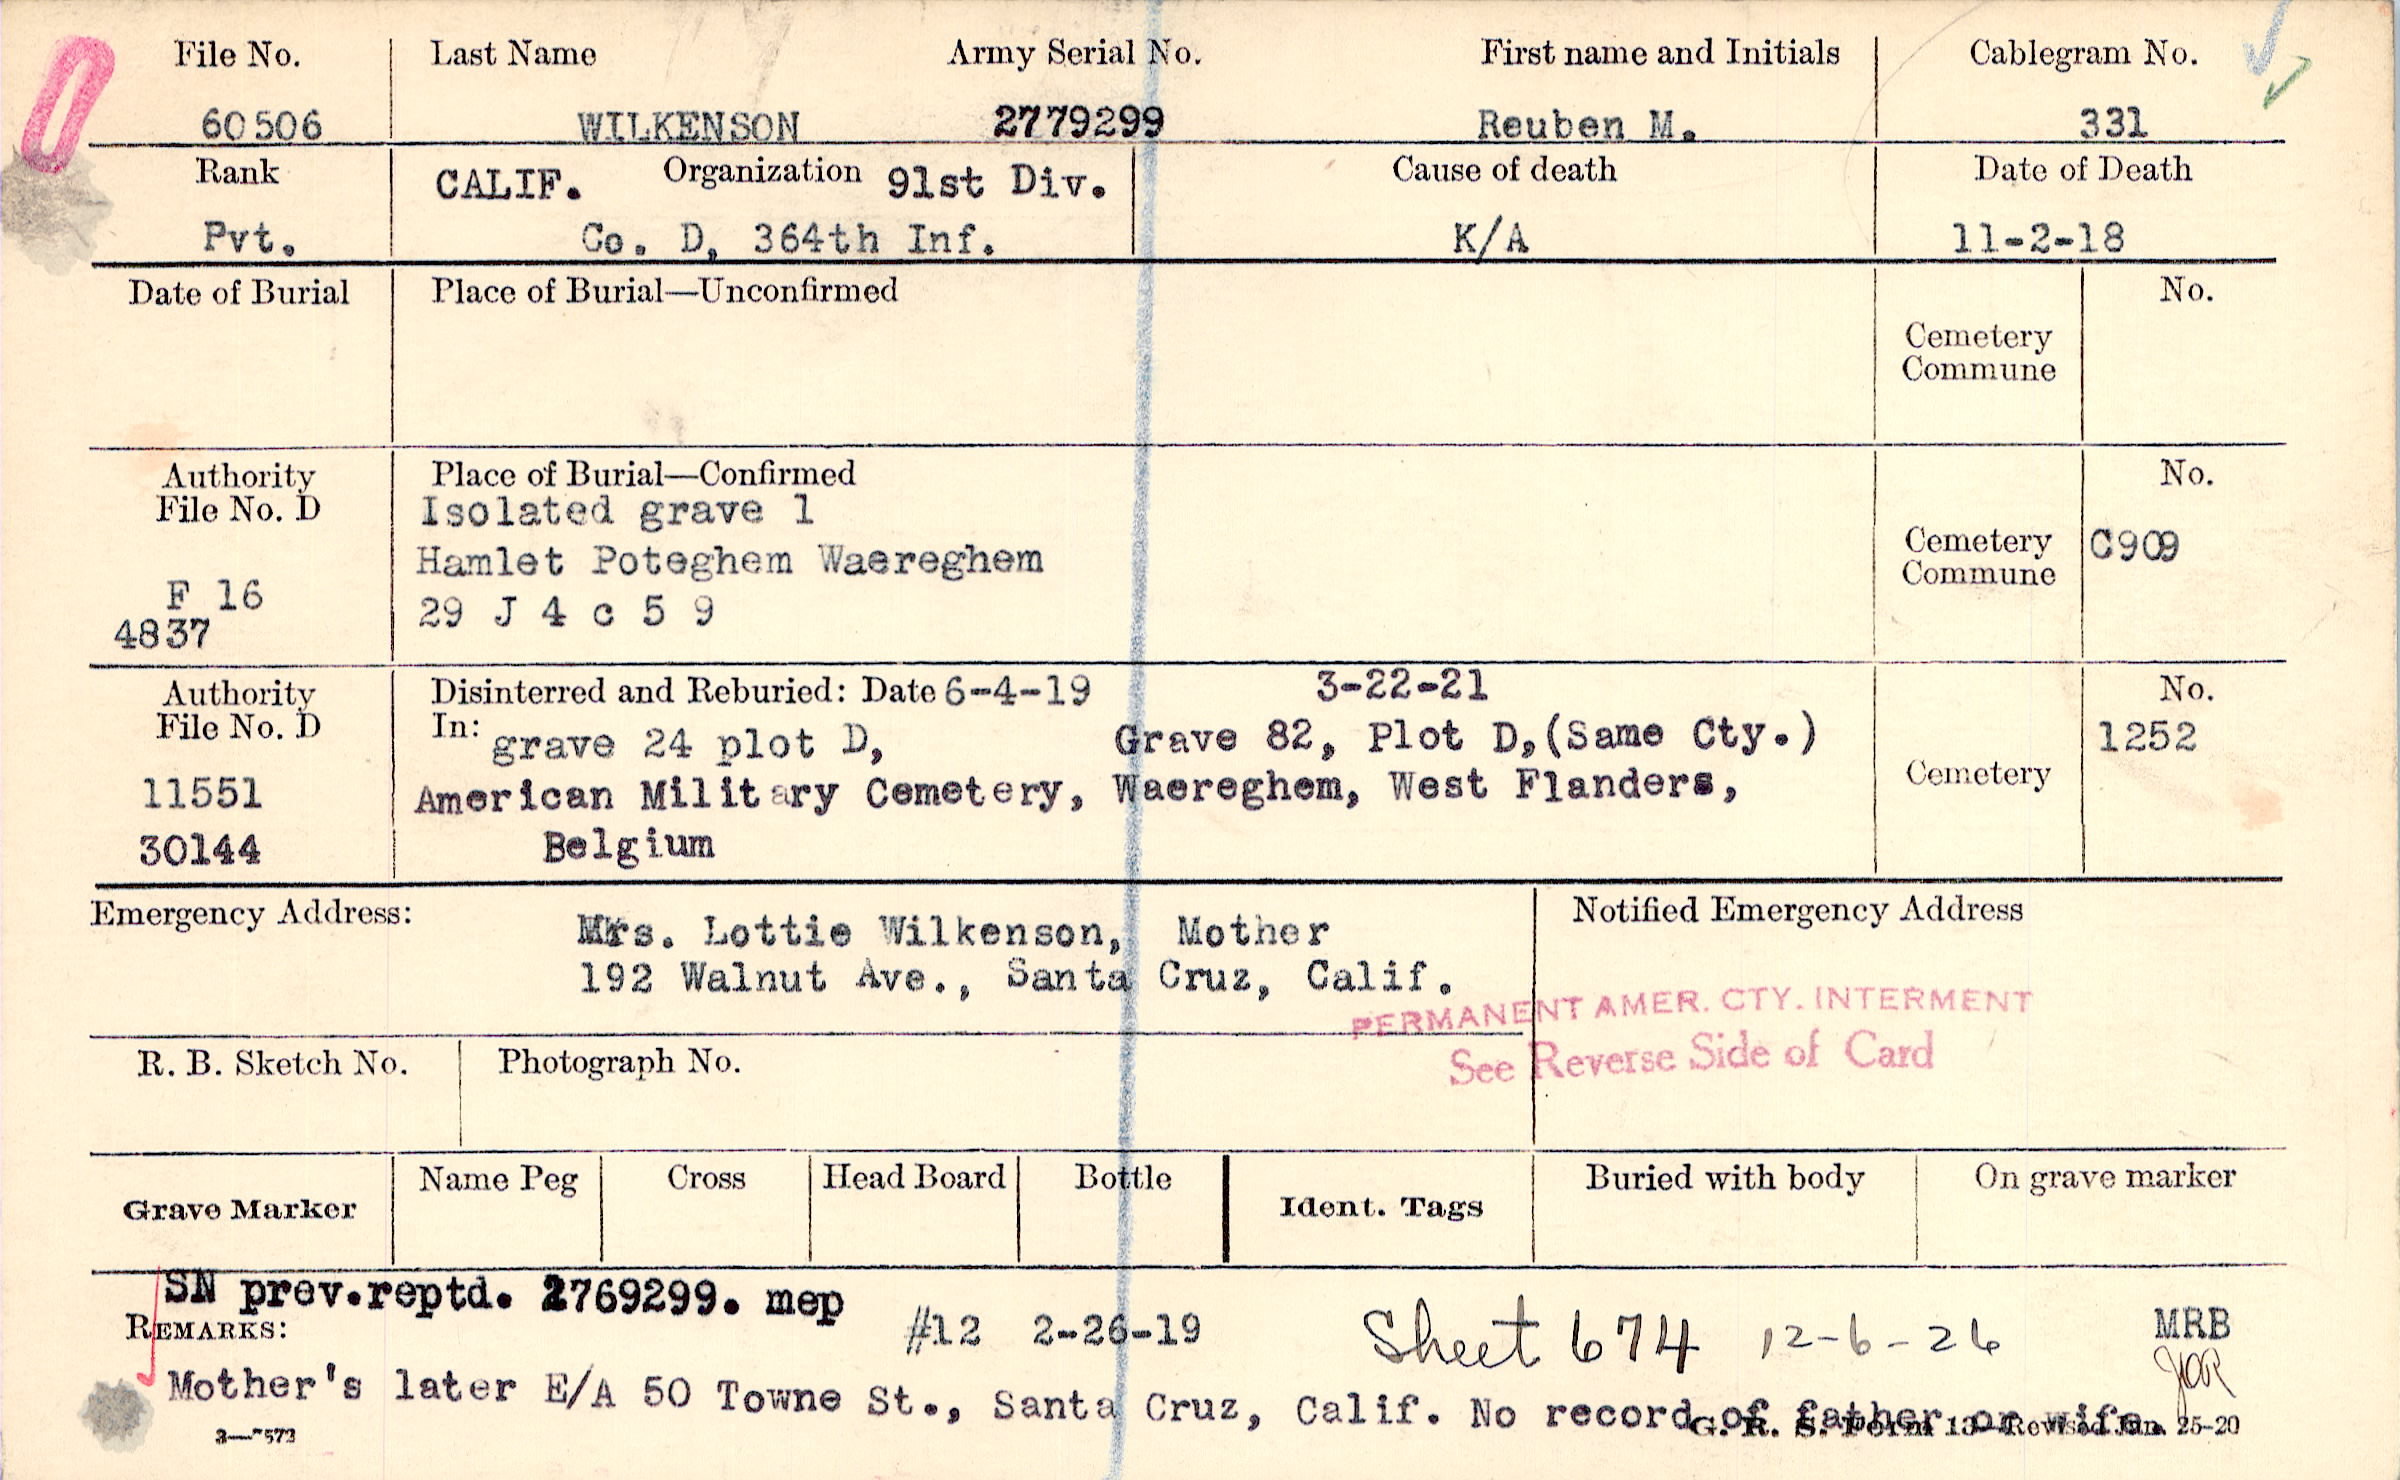 File No. Last Name Army Serial No. First name and Initials Cablegram No.
60506 WILKENSON 2779299 Reuben M. 331
Rank CALIF. Organization 91st Div. Cause of death Date of Death
Pvt. Co. D, 364th Inf. K/A 11-2-18
Date of Burial Place of Burial—Unconfirmed No.
Cemetery
Commune
Authority Place of Burial—Confirmed No.
File No. D Isolated grave 1
Hamlet Poteghem Waereghem Cemetery C909
F 16 Commune
4837 29 J 4 c 5 9
Authority Disinterred and Reburied: Date 6-4-19 3-22-21 No.
File No. D In: grave 24 plot D, Grave 82, Plot D,(Same Cty.) 1252
Cemetery
11551 American Military Cemetery, Waereghem, West Flanders,
30144 Belgium
Emergency Address: Notified Emergency Address
Mrs. Lottie Wilkenson, Mother
192 Walnut Ave., Santa Cruz, Calif.
PERMANENT AMER. CTY. INTERMENT
See Reverse Side of Card
R. B. Sketch No. Photograph No.
Grave Marker Name Peg Cross Head Board Bottle Ident. Tags Buried with body On grave marker
SN prev.reptd. 2769299. mep
REMARKS: #12 2-26-19 Sheet 674 12-6-26 MRB
Mother's later E/A 50 Towne St., Santa Cruz, Calif. No record of father or wife.
G. R. S. Form 13—Revised Jan. 25-20